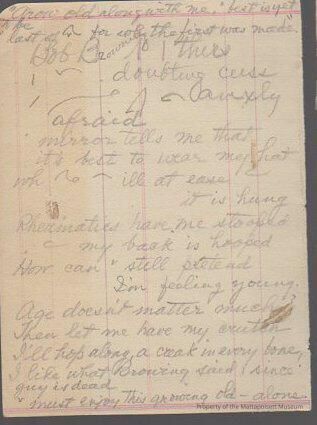 "Grow old along with me, "best is yet
to be
last of  for which the first was made"
Bob Browning
doubting cuss
afraid
mirror tells me that
it's best to wear my hat
wh ill at ease
it is hung
Rheumatics have me stooped
" my back is hooped
How can " still pretend
I'm feeling young.
Age doesn't matter much?
Then let me have my crutch
I'll hop along, a creak in every bone,
I like what Browning said, since
guy is dead
" must enjoy this growing old - alone
Property of the Mattapoisett Museum